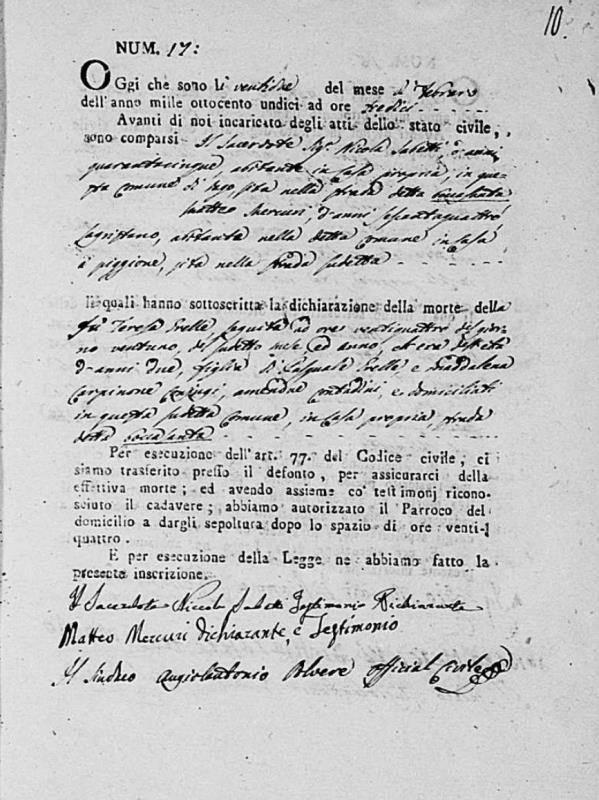 10.
NUM. 17:
OGgi che sono li ventidue del mese di Febraro
dell'anno mille ottocento undici ad ore tredici
Avanti di noi incaricato degli atti dello stato civile,
sono comparsi Il Sacerdote Sig.r Nicola Sabetti, d'anni
quarantacinque, abitante in casa propria, in que-
sta comune di sita nella strada detta
Matteo Mercuri, d'anni sessantaquattro
Sagristano, abitante nella detta comune in casa
a piggione, sita nella strada sudetta
li quali hanno sottoscritta la dichiarazione della morte della
fù Teresa seguita ad ore ventiquattro del gior-
no ventuno, del sudetto mese ed anno, età
d'anni due, figlia di Pasquale e Maddalena
Carpinone conjugi, amendue contadini, e domiciliati
in questa sudetta comune, in casa propria, strada
detta
Per esecuzione dell'art. 77. del Codice civile, ci
siamo trasferito presso il defonto, per assicurarci della
effettiva morte; ed avendo assieme co' testimonj ricono-
sciuto il cadavere; abbiamo autorizzato il Parroco del
domicilio a dargli sepoltura dopo lo spazio di ore venti-
quattro.
E per esecuzione della Legge ne abbiamo fatto la
presente inscrizione.
Il Sacerdote Niccola Sabetti Testimonio Dichiarante
Matteo Mercuri Dichiarante, e Testimonio
Il Sindaco Angiolantonio Polvere official Civile